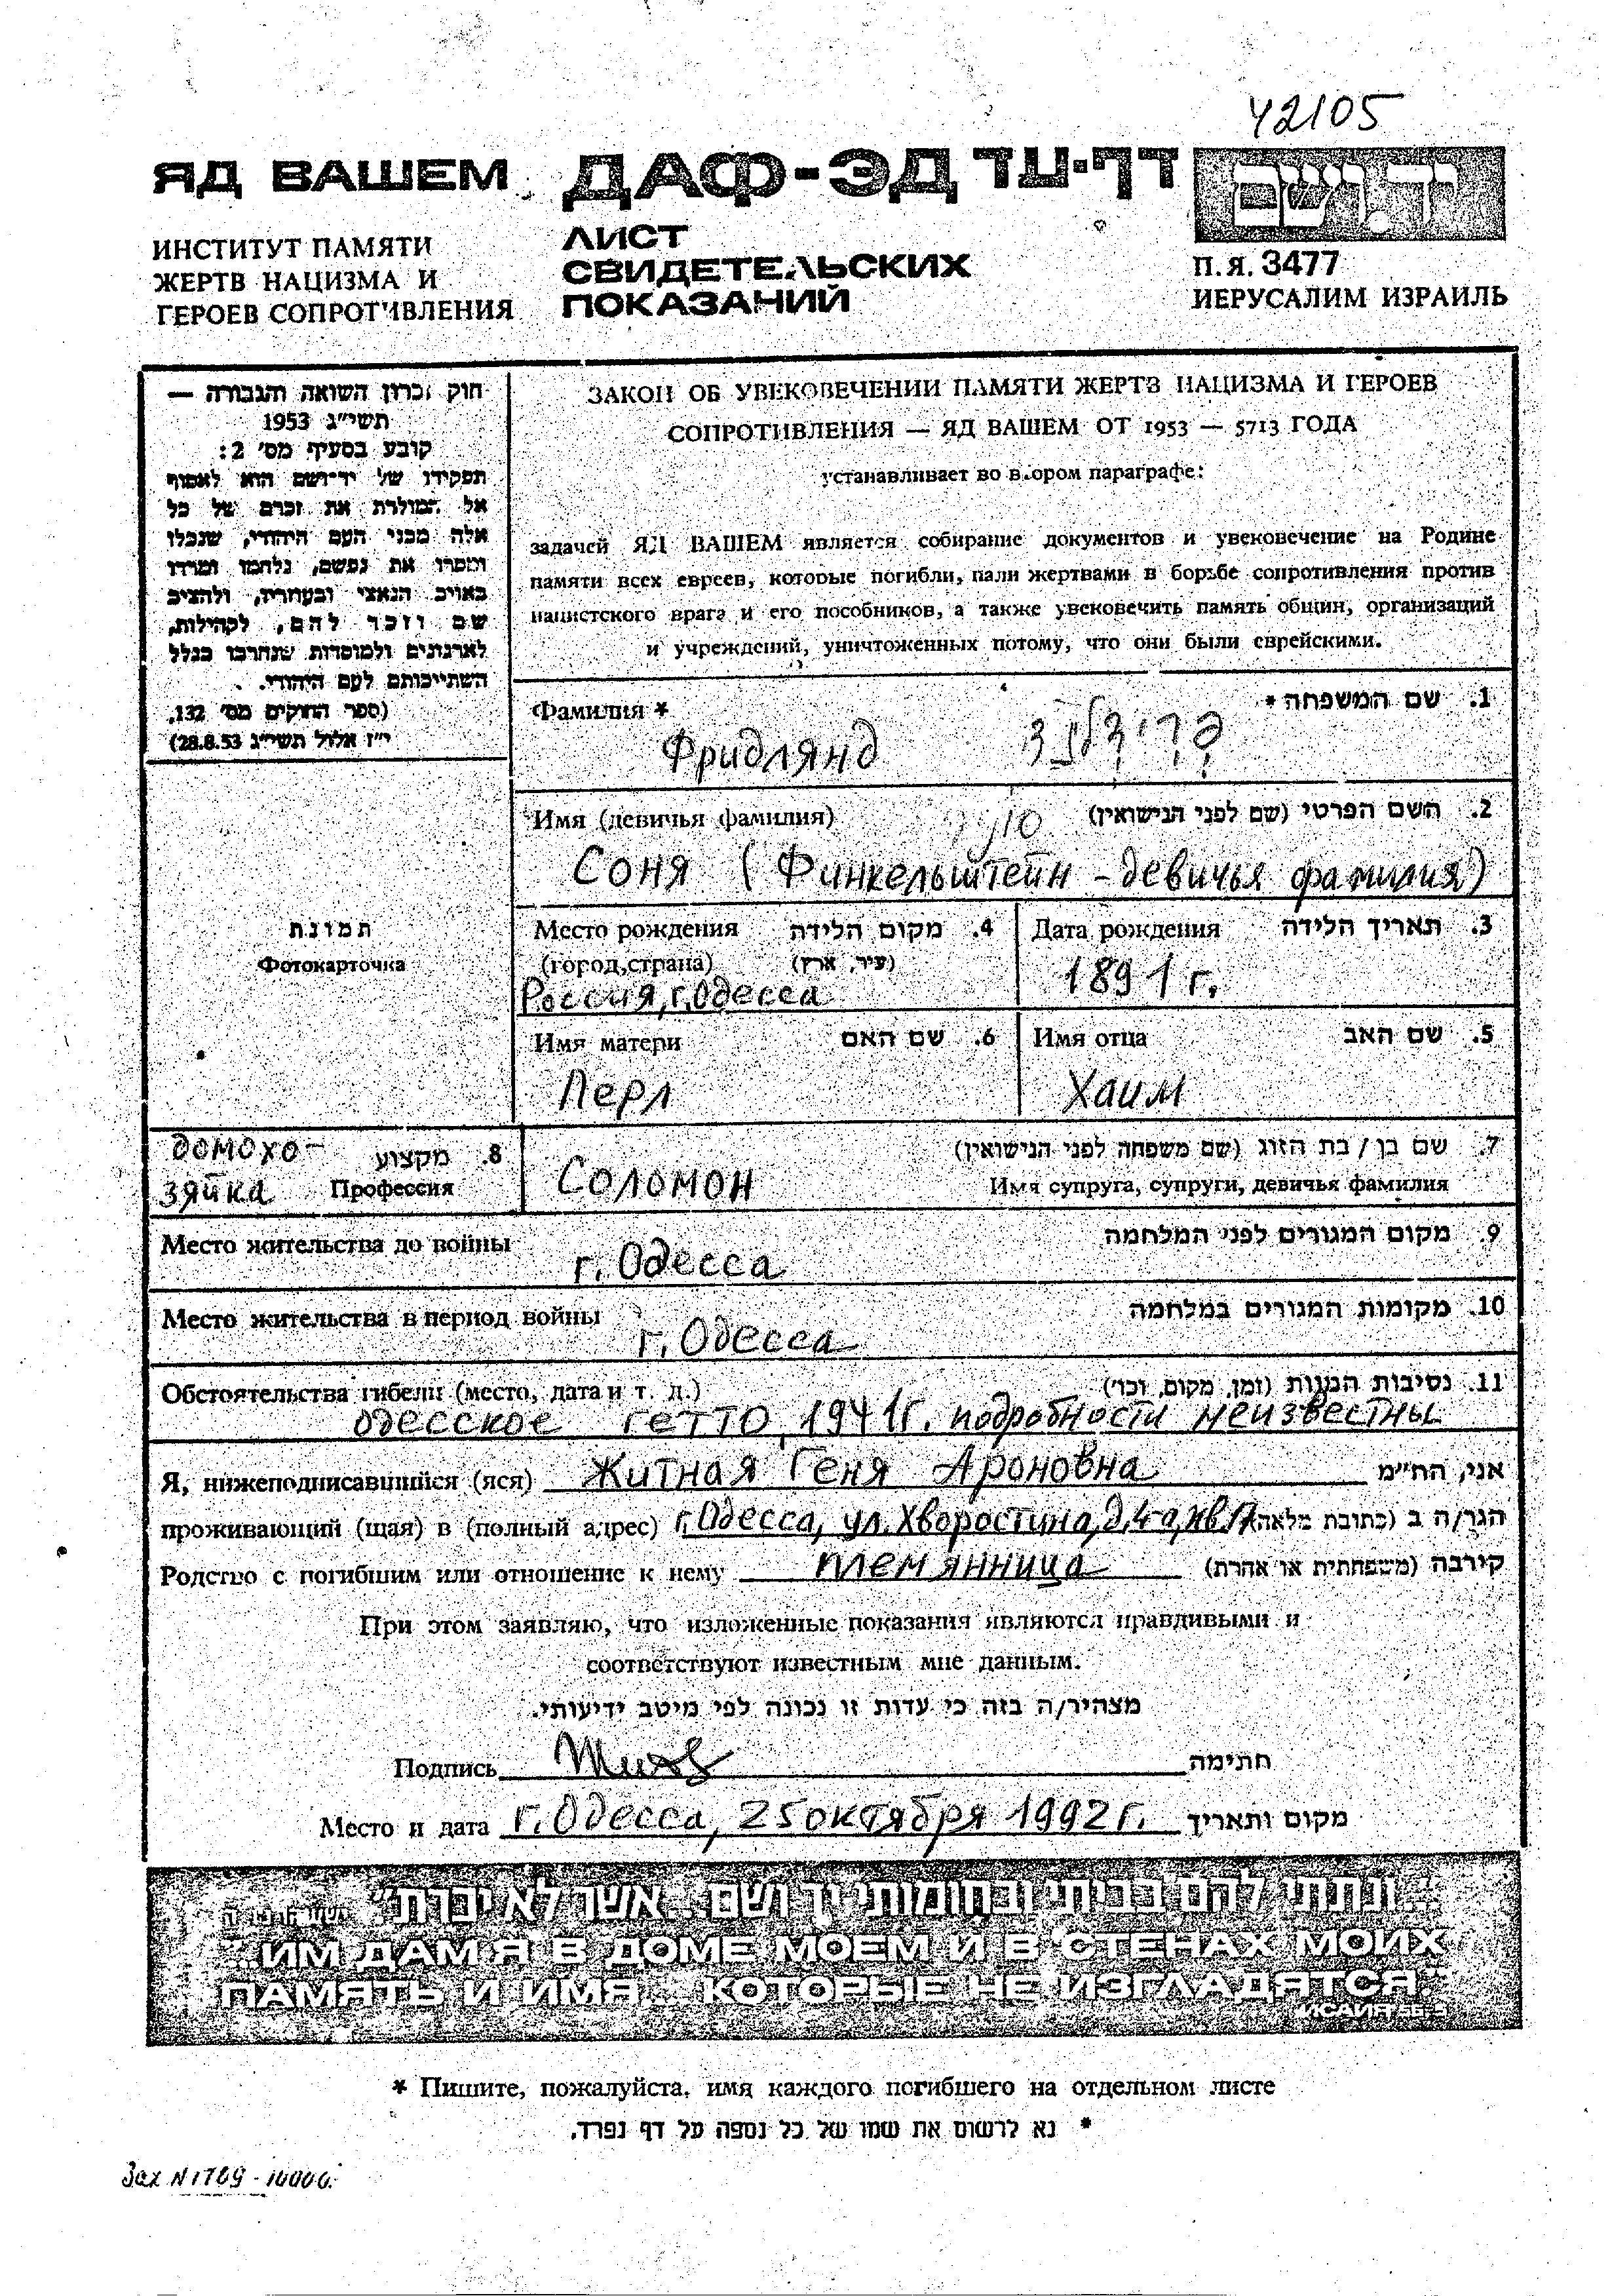 42105
ЯД ВАШЕМ ДАФ-ЭД דף-עד יד ושם
ИНСТИТУТ ПАМЯТИ
ЖЕРТВ НАЦИЗМА И
ГЕРОЕВ СОПРОТИВЛЕНИЯ
ЛИСТ
СВИДЕТЕЛЬСКИХ
ПОКАЗАНИЙ
П.Я. 3477
ИЕРУСАЛИМ ИЗРАИЛЬ
חוק זכרון השואה והגבורה —
תשי״ג 1953
קובע בסעיף מס׳ 2:
תפקידו של יד־ושם הוא לאסוף
אל המולדת את זכרם של כל
אלה מבני העם היהודי, שנפלו
ומסרו את נפשם, נלחמו ומרדו
באויב הנאצי ובעוזריו, ולהציב
שם וזכר להם, לקהילות,
לארגונים ולמוסדות שנחרבו בגלל
השתייכותם לעם היהודי.
(ספר החוקים מס׳ 132,
י״ז אלול תשי״ג 28.8.53)
ЗАКОН ОБ УВЕКОВЕЧЕНИИ ПАМЯТИ ЖЕРТВ НАЦИЗМА И ГЕРОЕВ
СОПРОТИВЛЕНИЯ — ЯД ВАШЕМ ОТ 1953 — 5713 ГОДА
устанавливает во втором параграфе:
задачей ЯД ВАШЕМ является собирание документов и увековечение на Родине
памяти всех евреев, которые погибли, пали жертвами в борьбе сопротивления против
нацистского врага и его пособников, а также увековечить память общин, организаций
и учреждений, уничтоженных потому, что они были еврейскими.
Фамилия * 1. שם המשפחה *
Фридлянд פרידלנד
Имя (девичья фамилия) 2. השם הפרטי (שם לפני הנישואין)
Соня (Финкельштейн - девичья фамилия)
תמונה
Фотокарточка
Место рождения 4. מקום הלידה
(город, страна) (עיר, ארץ)
Россия, г. Одесса
Дата рождения 3. תאריך הלידה
1891 г.
Имя матери 6. שם האם
Перл
Имя отца 5. שם האב
Хаим
домохо-
зяйка
8. מקצוע
Профессия
7. שם בן / בת הזוג (שם משפחה לפני הנישואין)
Соломон Имя супруга, супруги, девичья фамилия
Место жительства до войны 9. מקום המגורים לפני המלחמה
г. Одесса
Место жительства в период войны 10. מקומות המגורים במלחמה
г. Одесса
Обстоятельства гибели (место, дата и т. д.) 11. נסיבות המוות (זמן, מקום, וכו׳)
одесское гетто, 1941 г. подробности неизвестны
Я, нижеподписавшийся (яся) Житная Геня Ароновна אני, הח״מ
проживающий (щая) в (полный адрес) г. Одесса, ул. Хворостина, д. 4а, кв. הגר/ה ב (כתובת מלאה)
Родство с погибшим или отношение к нему племянница קירבה (משפחתית או אחרת)
При этом заявляю, что изложенные показания являются правдивыми и
соответствуют известным мне данным.
מצהיר/ה בזה כי עדות זו נכונה לפי מיטב ידיעותי.
Подпись חתימה
Место и дата г. Одесса, 25 октября 1992 г. מקום ותאריך
״...ונתתי להם בביתי ובחומותי יד ושם... אשר לא יכרת״
״ИМ ДАМ Я В ДОМЕ МОЕМ И В СТЕНАХ МОИХ
ПАМЯТЬ И ИМЯ... КОТОРЫЕ НЕ ИЗГЛАДЯТСЯ.״
ИСАИЯ 56-5
* Пишите, пожалуйста, имя каждого погибшего на отдельном листе
* נא לרשום את שמו של כל נספה על דף נפרד.
Зак N 1709 - 10000